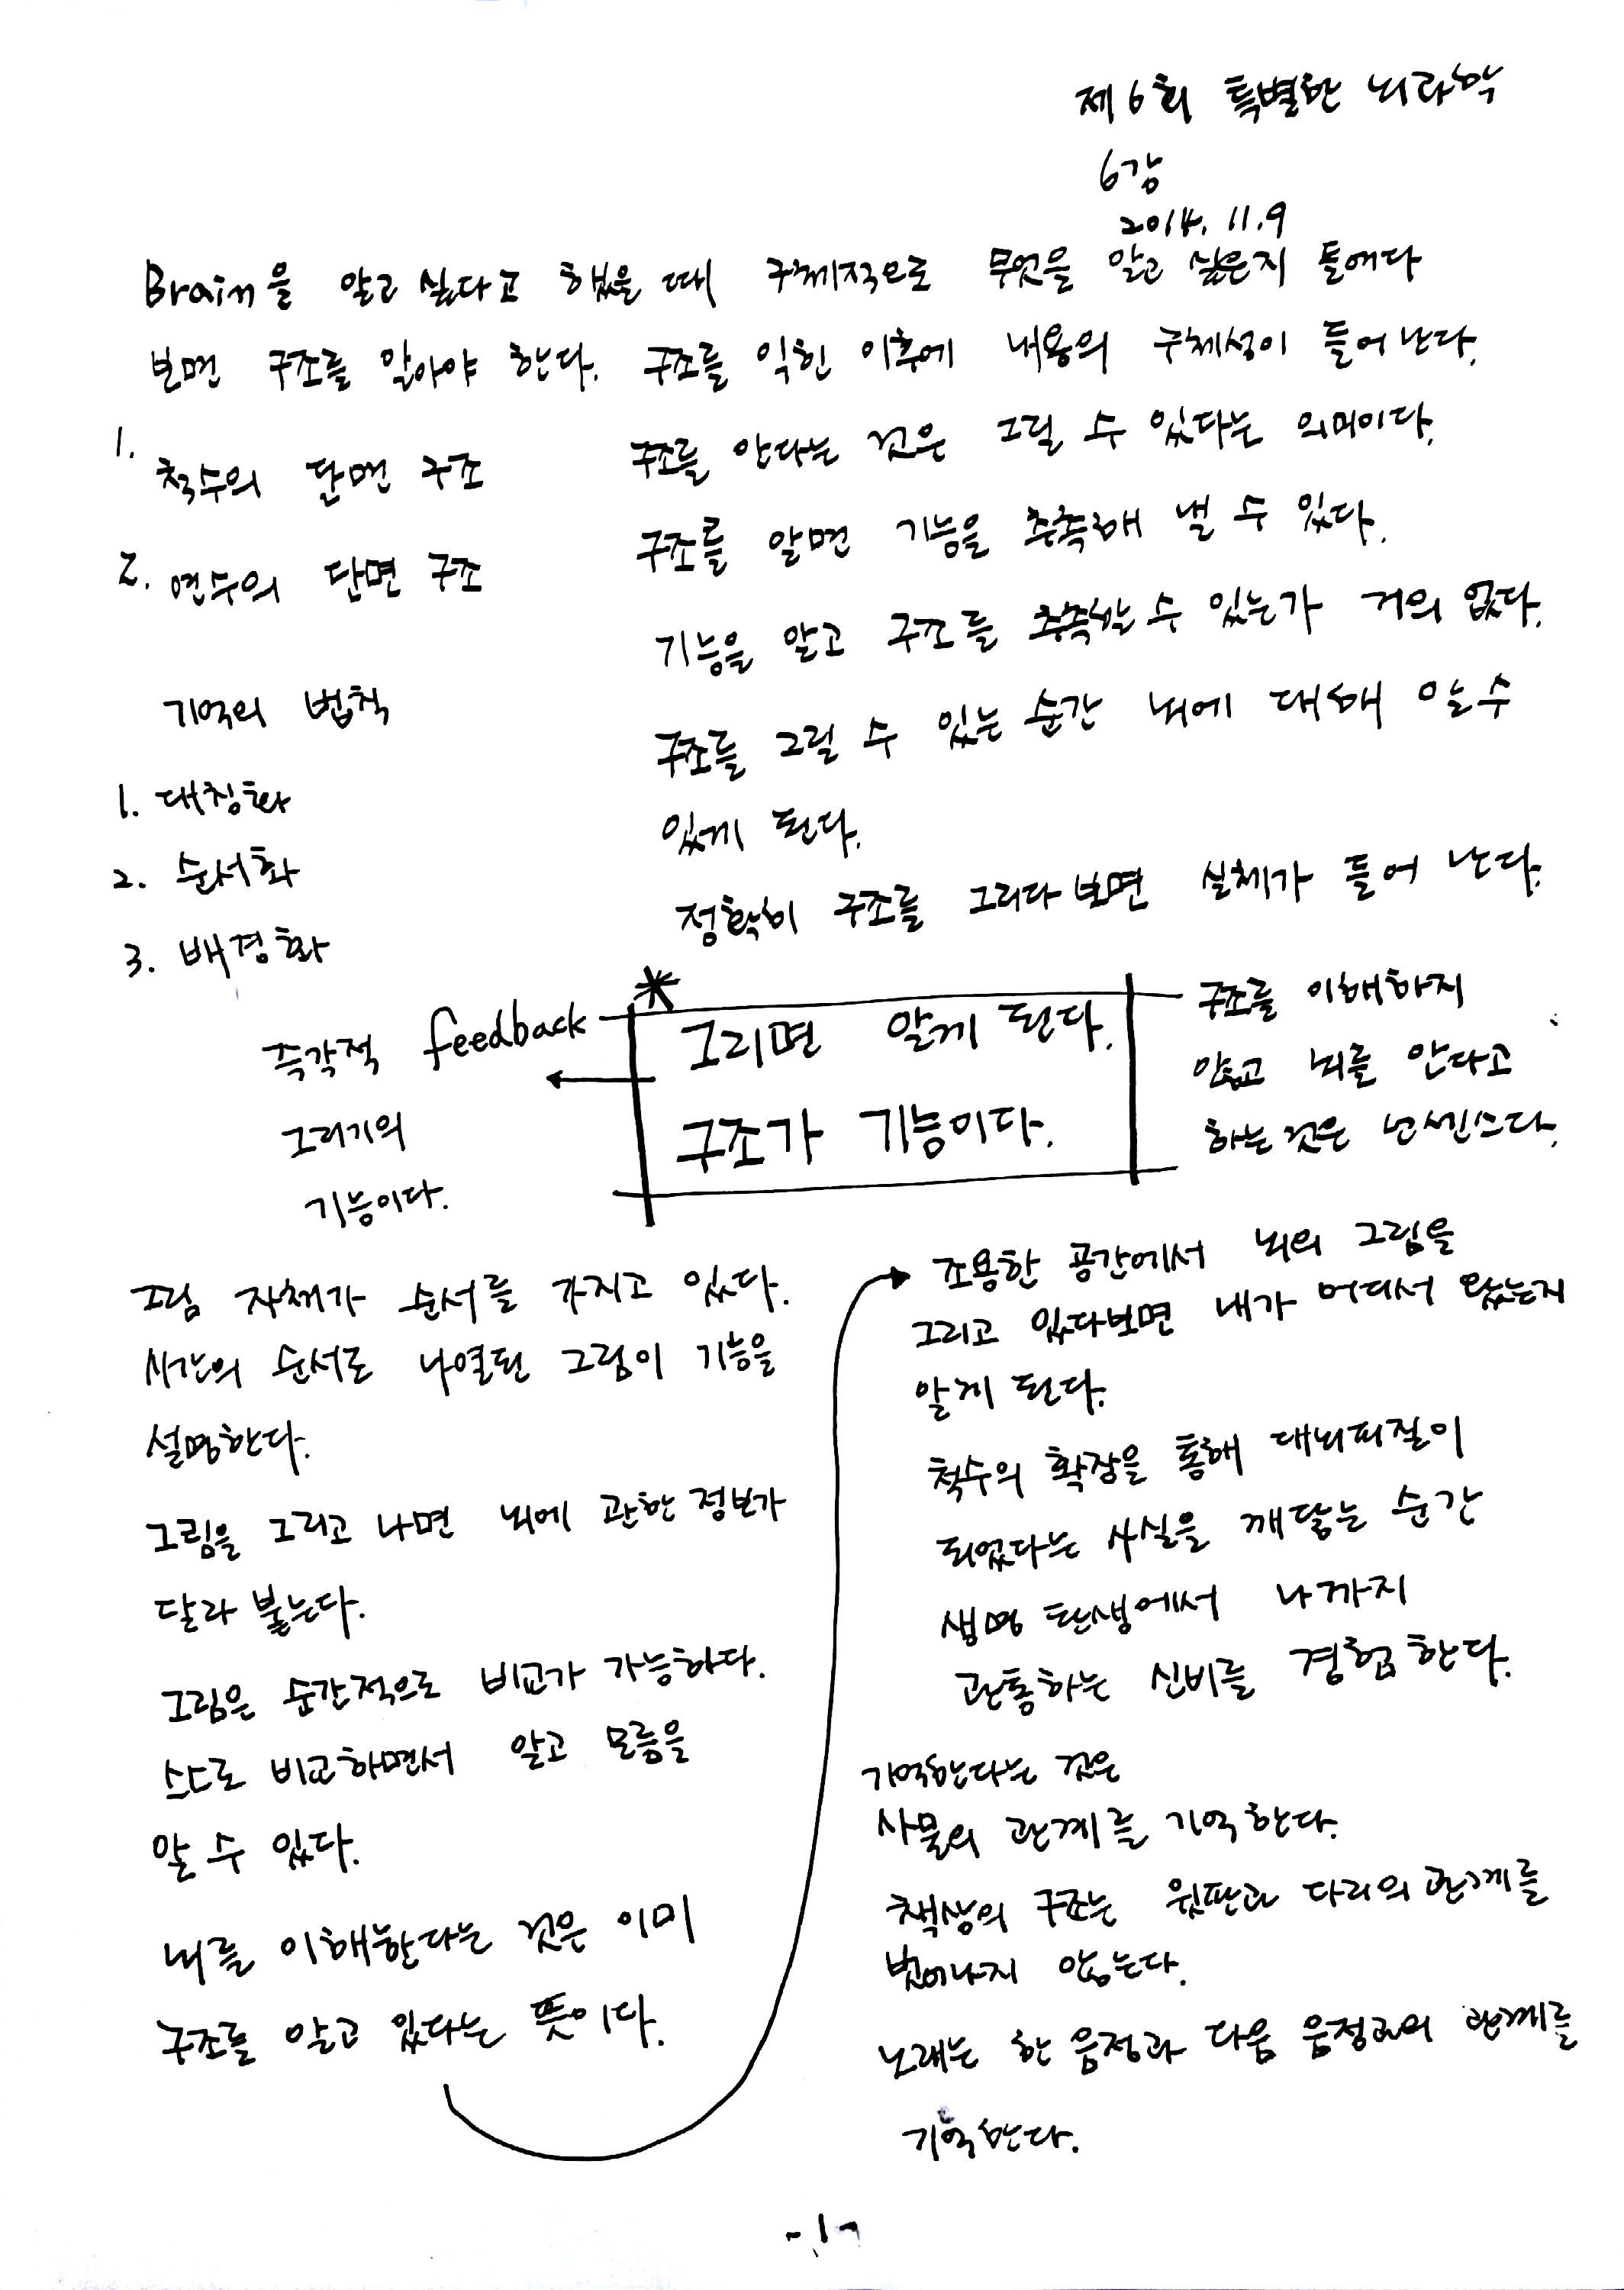 제6회 특별한 뇌과학
6강
2014. 11. 9
Brain을 알고 싶다고 했을 때 구체적으로 무엇을 알고 싶은지 들여다
보면 구조를 알아야 한다. 구조를 익힌 이후에 내용의 구체성이 들어난다.
1. 척수의 단면 구조
2. 연수의 단면 구조
기억의 법칙
1. 대칭화
2. 순서화
3. 배경화
구조를 안다는 것은 그릴 수 있다는 의미이다.
구조를 알면 기능을 추측해 낼 수 있다.
기능을 알고 구조를 추측할 수 있는가 거의 없다.
구조를 그릴 수 있는 순간 뇌에 대해 알 수
있게 된다.
정확히 구조를 그리다 보면 실체가 들어 난다.
* 그리면 알게 된다.
구조가 기능이다.
즉각적 feedback
그리기의
기능이다.
구조를 이해하지
않고 뇌를 안다고
하는 것은 넌센스다.
그림 자체가 순서를 가지고 있다.
시간의 순서로 나열된 그림이 기능을
설명한다.
그림을 그리고 나면 뇌에 관한 정보가
달라 붙는다.
그림은 순간적으로 비교가 가능하다.
스스로 비교하면서 알고 모름을
알 수 있다.
뇌를 이해한다는 것은 이미
구조를 알고 있다는 뜻이다.
조용한 공간에서 뇌의 그림을
그리고 있다보면 내가 어디서 왔는지
알게 된다.
척수의 확장을 통해 대뇌피질이
되었다는 사실을 깨닫는 순간
생명 탄생에서 나까지
관통하는 신비를 경험한다.
기억한다는 것은
사물의 관계를 기억한다.
책상의 구조는 윗판과 다리의 관계를
벗어나지 않는다.
노래는 한 음정과 다음 음정과의 관계를
기억한다.
-1-